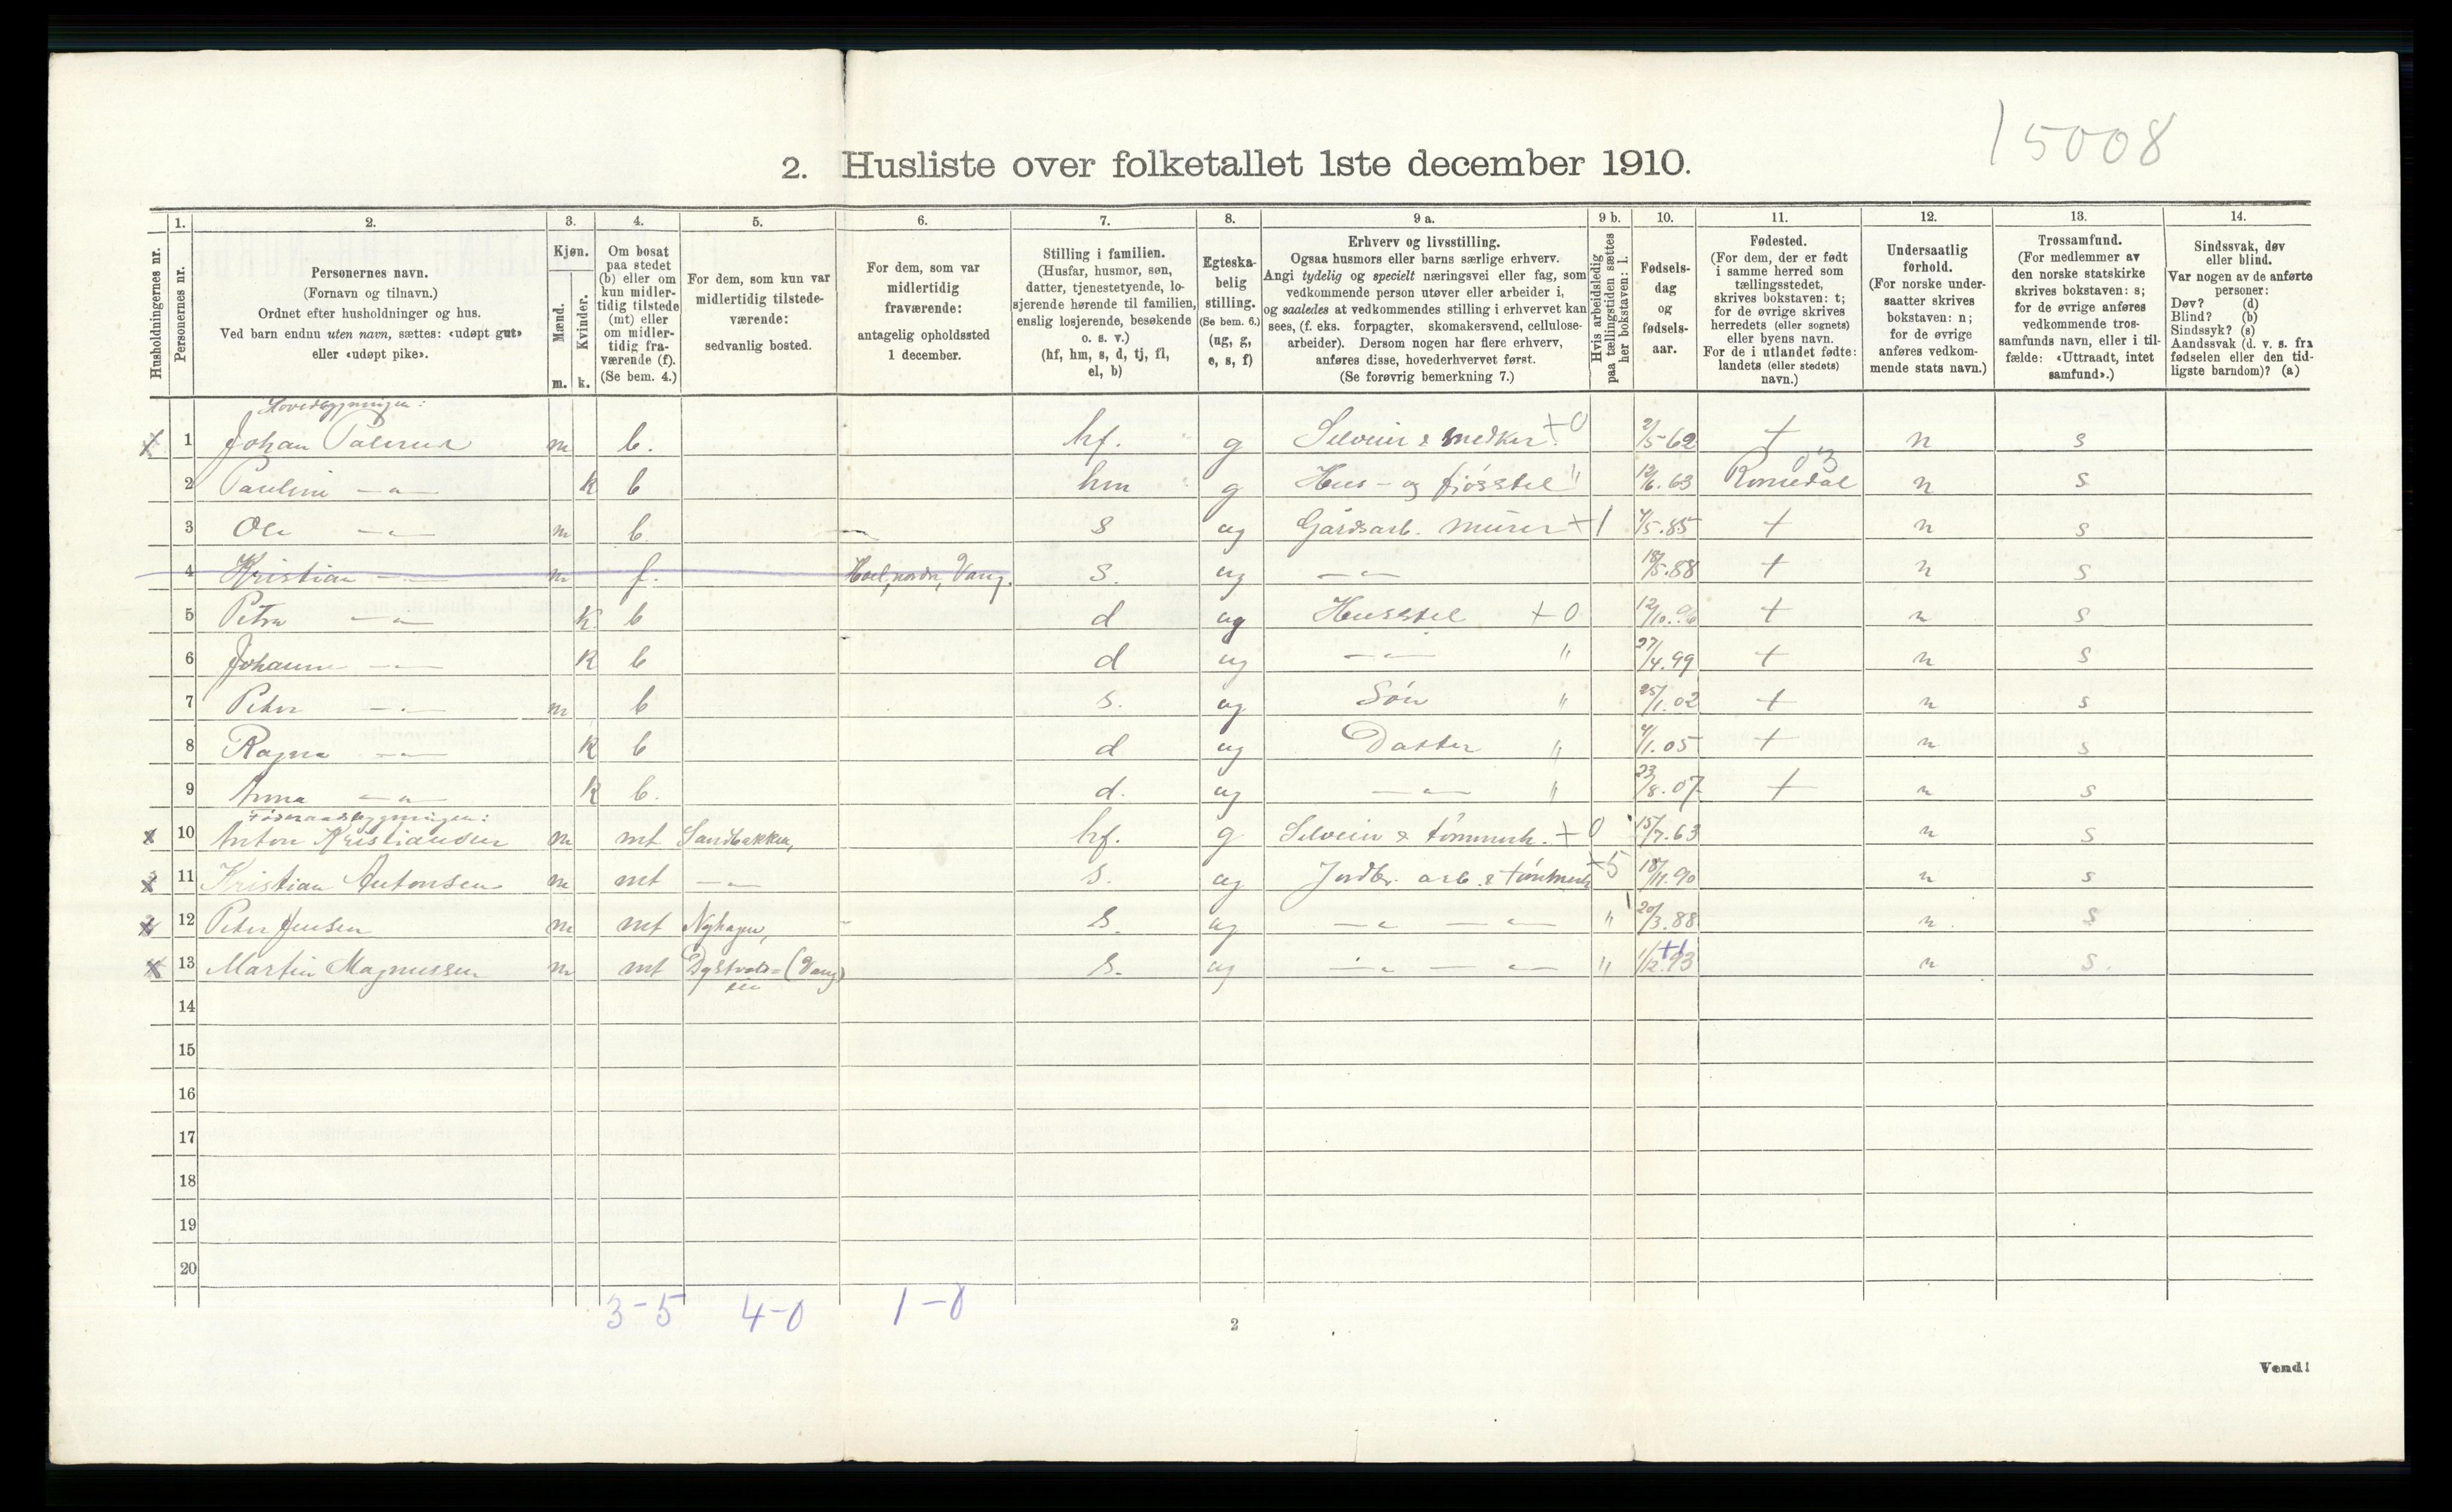 15008
2. Husliste over folketallet 1ste december 1910.
Husholdningernes nr.
1. Personernes nr.
2. Personernes navn. (Fornavn og tilnavn.) Ordnet efter husholdninger og hus. Ved barn endnu uten navn, sættes: «udøpt gut» eller «udøpt pike».
3. Kjøn. Mænd. m. Kvinder. k.
4. Om bosat paa stedet (b) eller om kun midlertidig tilstede (mt) eller om midlertidig fraværende (f). (Se bem. 4.)
5. For dem, som kun var midlertidig tilstedeværende: sedvanlig bosted.
6. For dem, som var midlertidig fraværende: antagelig opholdssted 1 december.
7. Stilling i familien. (Husfar, husmor, søn, datter, tjenestetyende, losjerende hørende til familien, enslig losjerende, besøkende o. s. v.) (hf, hm, s, d, tj, fl, el, b)
8. Egteskabelig stilling. (Se bem. 6.) (ug, g, e, s, f)
9 a. Erhverv og livsstilling. Ogsaa husmors eller barns særlige erhverv. Angi tydelig og specielt næringsvei eller fag, som vedkommende person utøver eller arbeider i, og saaledes at vedkommendes stilling i erhvervet kan sees, (f. eks. forpagter, skomakersvend, cellulosearbeider). Dersom nogen har flere erhverv, anføres disse, hovederhvervet først. (Se forøvrig bemerkning 7.)
9 b. Hvis arbeidsledig paa tællingstiden sættes her bokstaven: l.
10. Fødselsdag og fødselsaar.
11. Fødested. (For dem, der er født i samme herred som tællingsstedet, skrives bokstaven: t; for de øvrige skrives herredets (eller sognets) eller byens navn. For de i utlandet fødte: landets (eller stedets) navn.)
12. Undersaatlig forhold. (For norske undersaatter skrives bokstaven: n; for de øvrige anføres vedkommende stats navn.)
13. Trossamfund. (For medlemmer av den norske statskirke skrives bokstaven: s; for de øvrige anføres vedkommende trossamfunds navn, eller i tilfælde: «Uttraadt, intet samfund».)
14. Sindssvak, døv eller blind. Var nogen av de anførte personer: Døv? (d) Blind? (b) Sindssyk? (s) Aandssvak (d. v. s. fra fødselen eller den tidligste barndom)? (a)
Hovedbygningen:
1 Johan m b. hf. g Selveier & +0 2/5-62 t n s
2 Pauline —"— k b hm g Hus- og fjösstel " 12/6.63 Romedal 03 n s
3 Ole —"— m b. s ug Gårdsarb. murer +1 4/5.85 t n s
4 Kristian —"— m f. Hoel, nordre, Vang. s. ug —"— 18/5.88 t n s
5 Petra —"— k b d ug Husstel +0 12/10.96 t n s
6 Johanne —"— k b d ug —"— " 27/4.99 t n s
7 Peter —"— m b s. ug Sön " 25/1.02 t n s
8 Ragna —"— k b d ug Datter " 4/1.05 t n s
9 Anna —"— k b. d. ug —"— " 23/8.07 t n s
Föderaadsbygningen:
10 Anton Kristiansen m mt Sandbakken, hf. g Selveier & tömmerh. +0 15/7.63 n s
11 Kristian Antonsen m mt —"— s. ug Jordbr. arb. & tömmerh +5 18/11.90 n s
12 Peter Jensen m mt Nyhagen, s. ug —"— —"— " 20/3.88 n. s
13 Martin Magnussen m mt (Vang) s. ug —"— —"— " 1/12.93 +1 n s.
14
15
16
17
18
19
20
3-5 4-0 1-0
2
Vend!